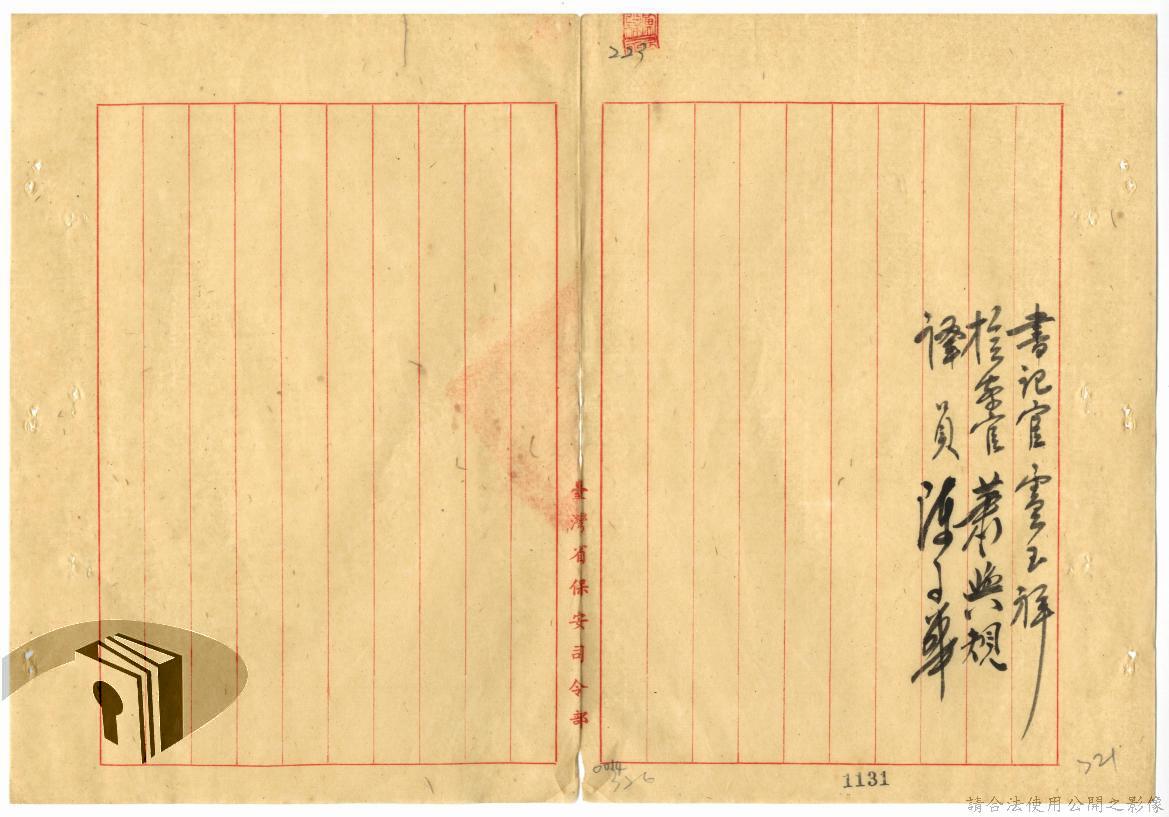 書記官 雲玉祥
檢查官 蕭與規
譯員 陳子華
臺灣省保安司令部
223
0014
326
1131
321
請合法使用公開之影像